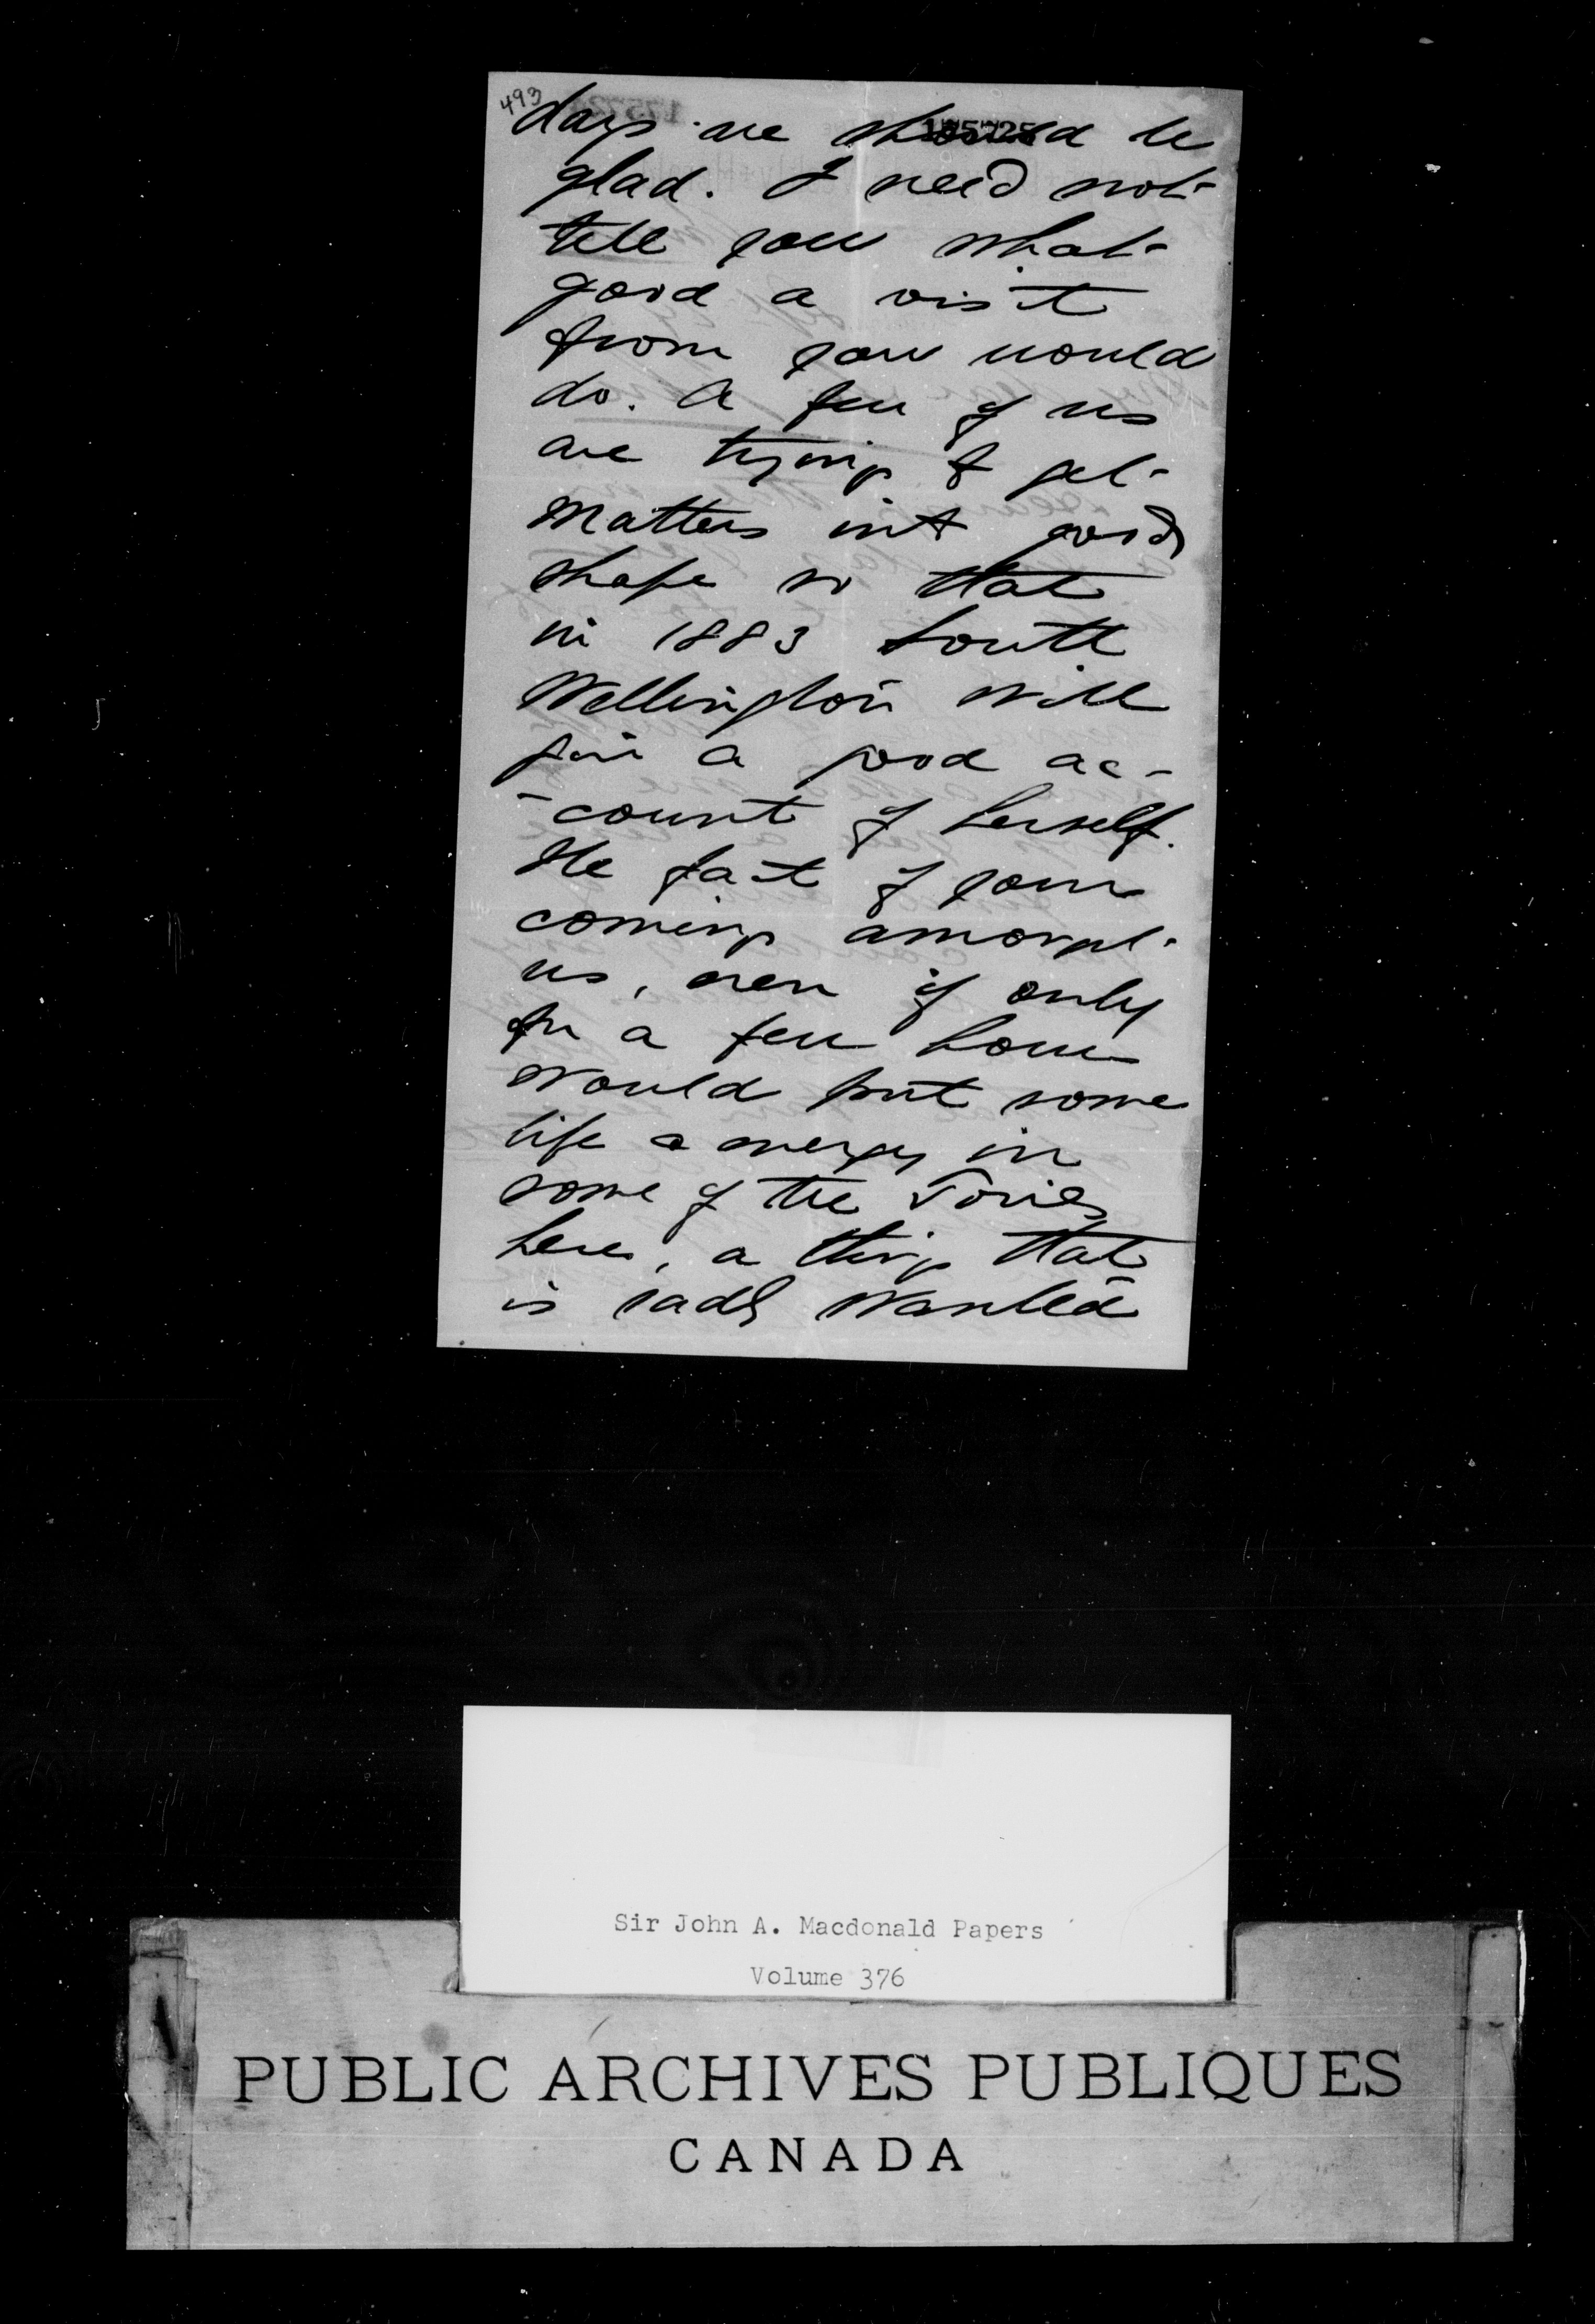 493
175725
days we should be
glad. I need not
tell you what
good a visit
from you would
do. A few of us
are trying to get
matters into good
shape so that
in 1883 South
Wellington will
give a good ac-
-count of herself.
The fact of your
coming amongst
us, even if only
for a few hours
would put some
life & energy in
some of the Tories
here, a thing that
is sadly wanted
Sir John A. Macdonald Papers
Volume 376
PUBLIC ARCHIVES PUBLIQUES
CANADA